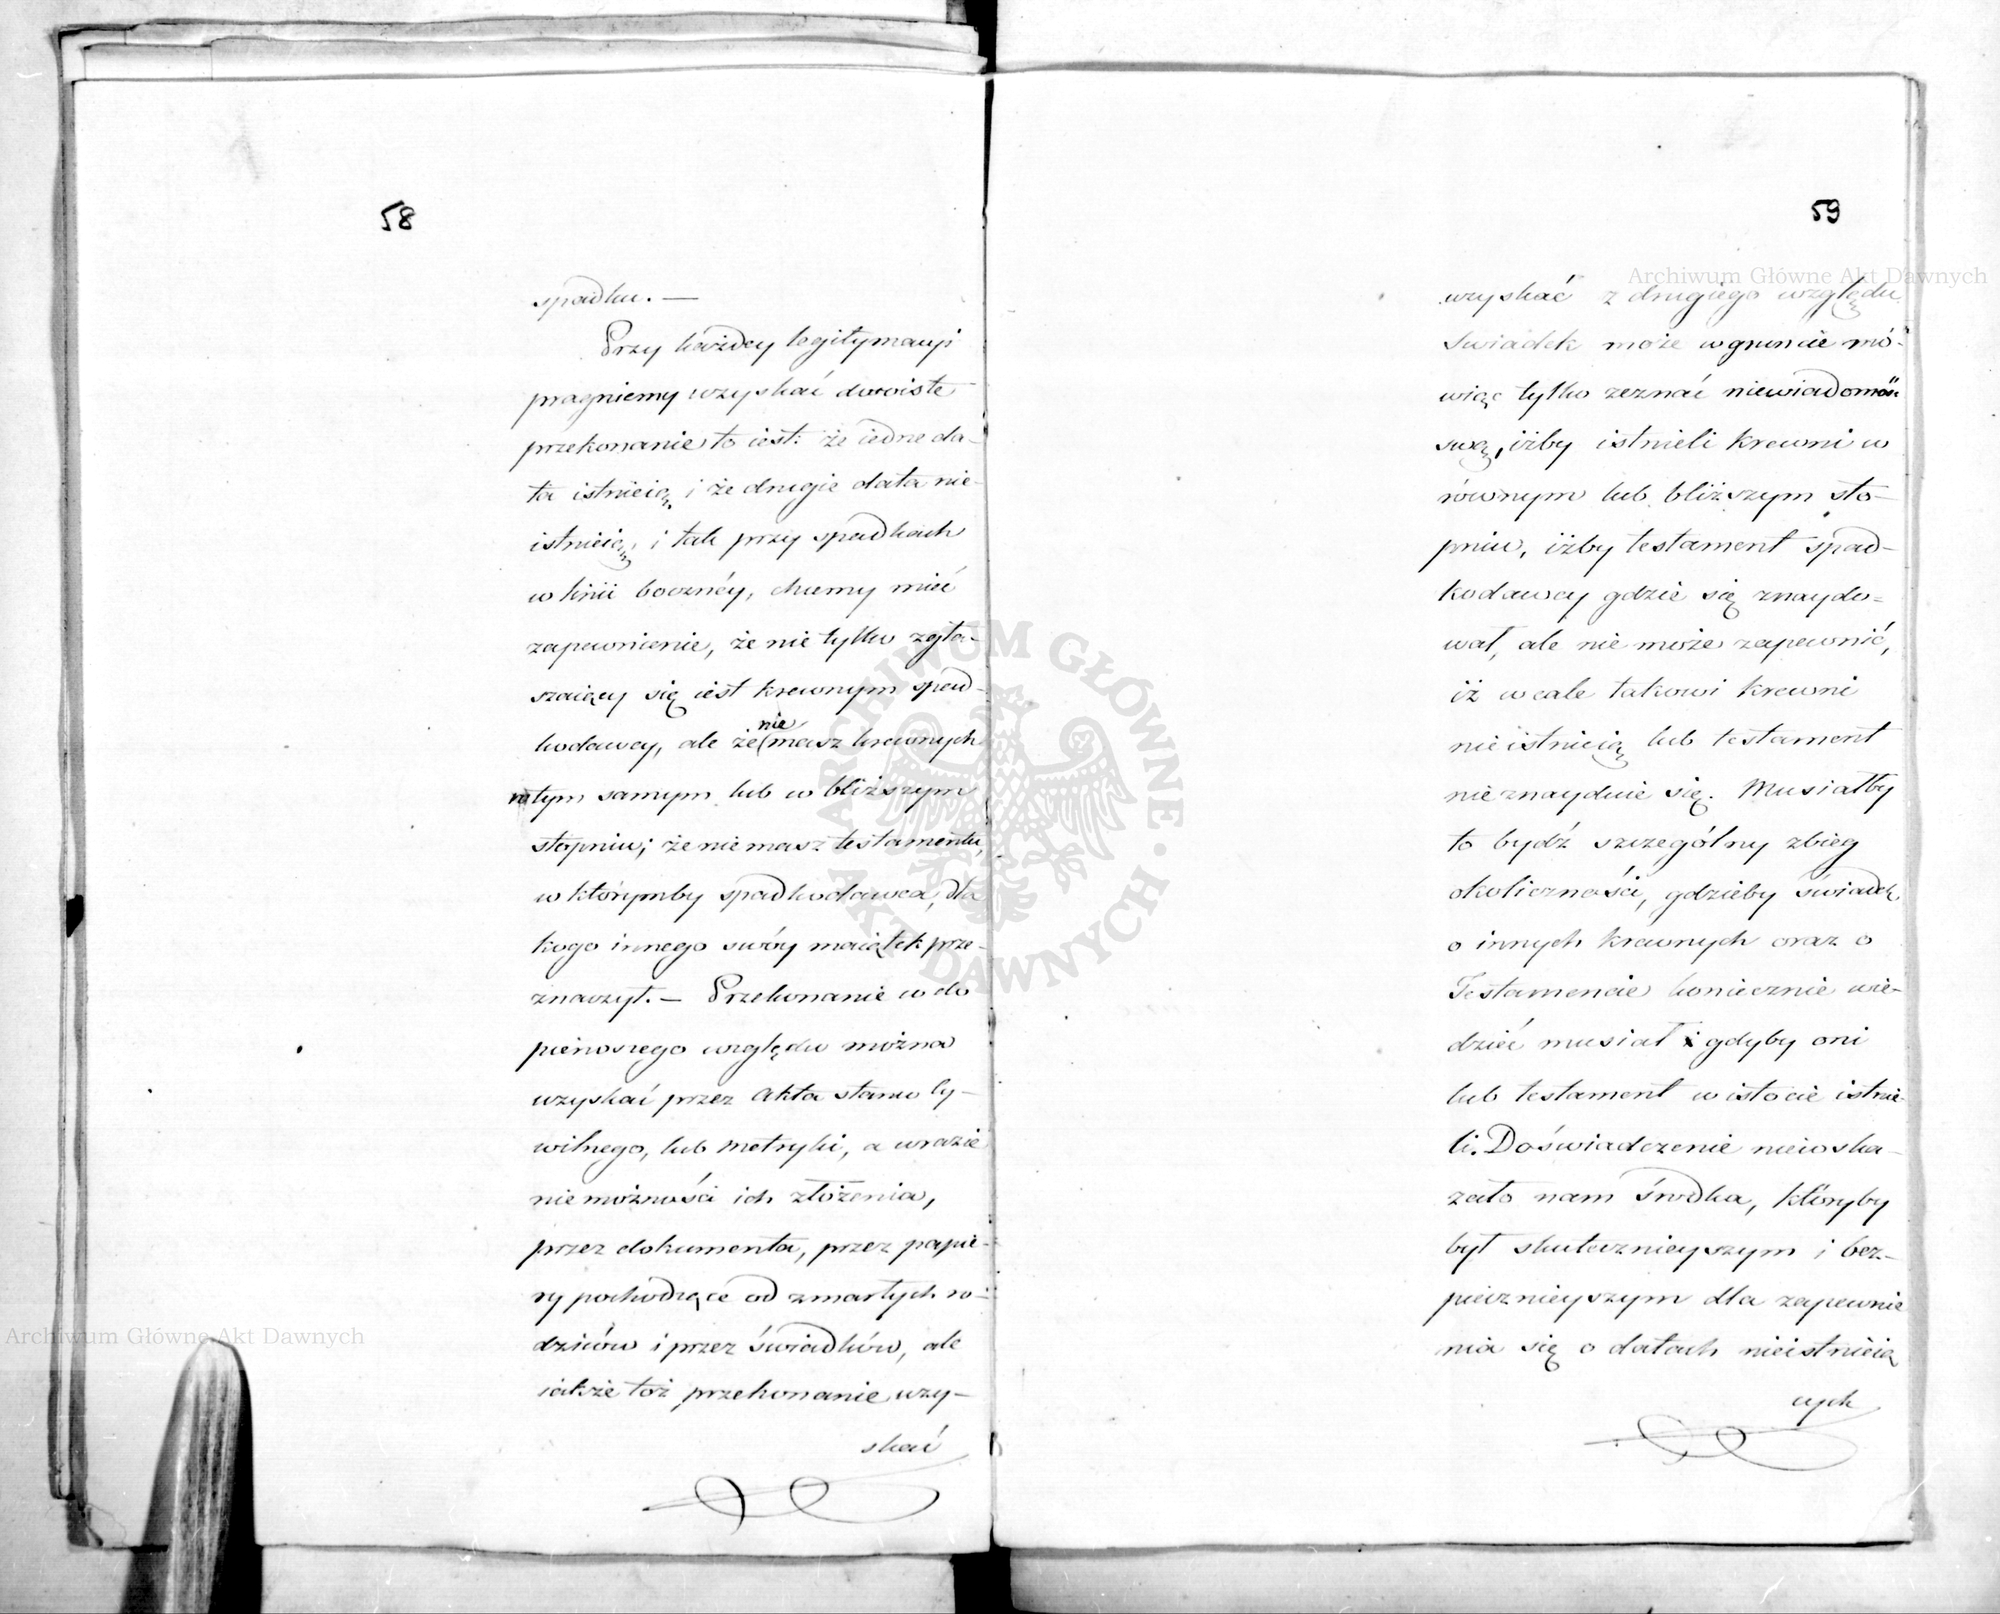 58
spadku. —
Przy każdey legitymacyi
pragniemy uzyskać dwoiste
przekonanie to iest: że iedne da-
ta istnieią, i że drugie data nie-
istnieią, i tak przy spadkach
w linii boczney, chcemy mieć
zapewnienie, że nie tylko zgła-
szaiący się iest krewnym spad-
kodawcy, ale że nie masz krewnych
w tym samym lub w bliższym
stopniu; że nie masz testamentu,
w którymby spadkodawca, dla
kogo innego swóy maiątek prze-
znaczył. — Przekonanie w do
pierwszego względu można
uzyskać przez Akta stanu Cy-
wilnego, lub metryki, a w razie
niemożności ich złożenia,
przez dokumenta, przez papie-
ry pochodzące od zmarłych ro-
dziców i przez świadków, ale
iakże toż przekonanie uzy-
skać
59
uzyskać z drugiego względu
Świadek może w gruncie mó-
wiąc tylko zeznać niewiadomość
swą, iżby istnieli krewni w
równym lub bliższym sto-
pniu, iżby testament spad-
kodawcy gdzie się znaydo-
wał, ale nie może zapewnić,
iż wcale takowi krewni
nieistnieią lub testament
nieznayduie się. Musiałby
to bydź szczególny zbieg
okoliczności, gdzieby świadek
o innych krewnych oraz o
Testamencie koniecznie wie-
dzieć musiał gdyby oni
lub testament w istocie istnie-
li. Doświadczenie niewska-
zało nam środka, któryby
był skutecznieyszym i bez-
piecznieyszym dla zapewnie
nia się o datach nieistnieią
cych
Archiwum Główne Akt Dawnych
Archiwum Główne Akt Dawnych
ARCHIWUM GŁÓWNE AKT DAWNYCH